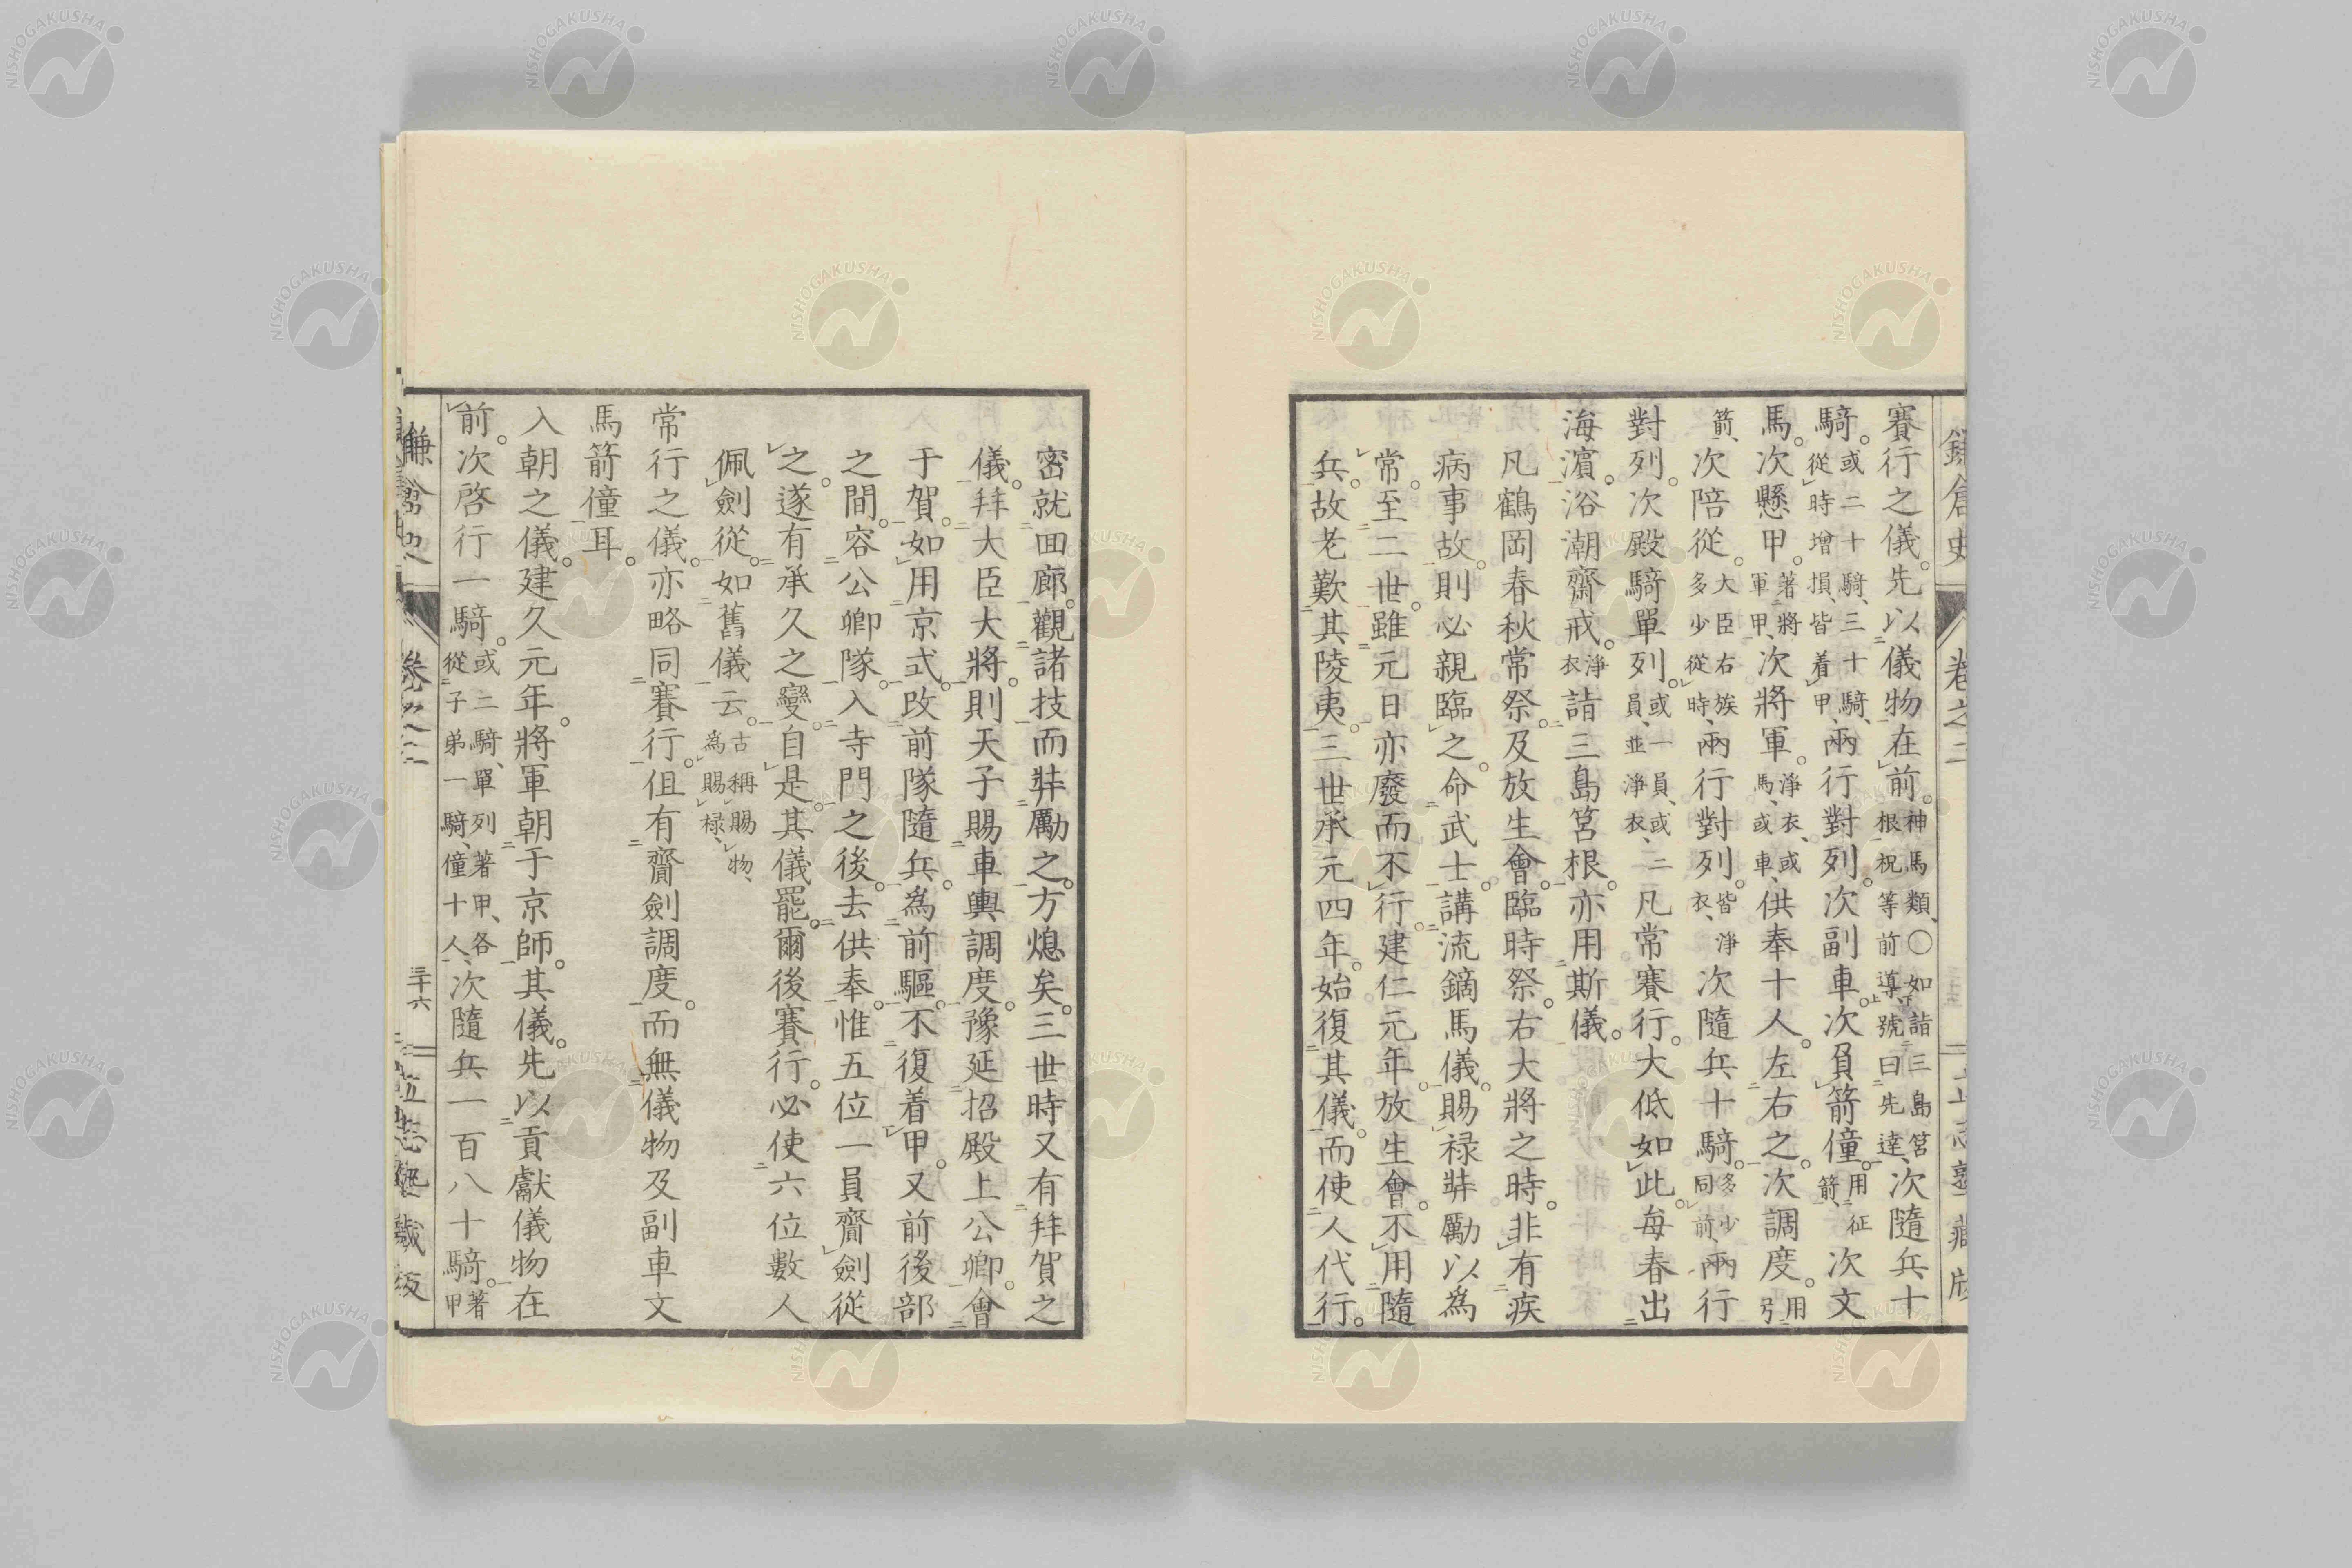 賽行之儀。先以儀物在前。神馬類、〇如詣三島筥根祝等前導號曰先達、次隨兵十
騎。或二十騎、三十騎、從時增損、皆着甲、兩行對列。次副車。次負箭僮。用征箭、次文
馬。次懸甲。著將軍甲、次將軍。淨衣、或馬、或車、供奉十人。左右之。次調度。用弓
箭、次陪從。大臣右族多少從時、兩行對列。皆淨衣、次隨兵十騎。多少同前、兩行
對列。次殿騎單列。或一員、或二員、並淨衣、凡常賽行。大低如此。每春出
海濵。浴潮齋戒。淨衣詣三島筥根。亦用斯儀。
凡鶴岡春秋常祭。及放生會。臨時祭。右大將之時。非有疾
病事故。則必親臨之。命武士。講流鏑馬儀。賜祿弉勵以為
常。至二世。雖元日亦廢而不行。建仁元年。放生會。不用隨
兵。故老歎其陵夷。三世承元四年。始復其儀。而使人代行。
密就回廊。觀諸技而弉勵之。方熄矣。三世時又有拜賀之
儀。拜大臣大將。則天子賜車輿調度。豫延招殿上公卿。會
于賀。如用京式。改前隊隨兵。為前驅。不復着甲。又前後部
之間。容公卿隊。入寺門之後。去供奉。惟五位一員齎劍從
之。遂有承久之變。自是其儀罷。爾後賽行。必使六位數人
佩劍從。如舊儀云。古稱賜物、為賜祿、
常行之儀。亦略同賽行。但有齎劍調度。而無儀物及副車文
馬箭僮耳。
入朝之儀。建久元年。將軍朝于京師。其儀。先以貢獻儀物在
前。次啓行一騎。或二騎、單列著甲、各從子弟一騎、僮十人、次隨兵一百八十騎。著甲
鎌倉史
卷之二
三十六